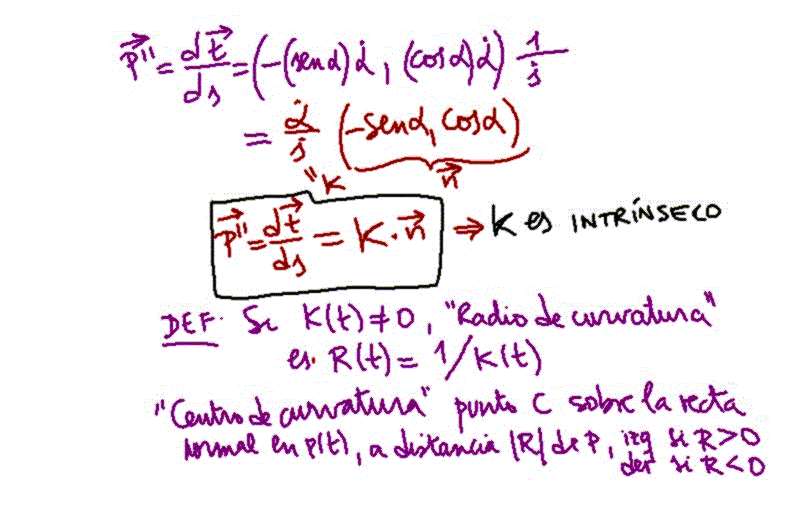 p⃗'' = dt⃗/ds = (-(senα)α̇, (cosα)α̇) 1/ṡ
= α̇/ṡ (-senα, cosα)
"K n⃗
p⃗'' = dt⃗/ds = K·n⃗ ⇒ K es INTRÍNSECO
DEF: Si K(t)≠0, "Radio de curvatura"
es. R(t) = 1/K(t)
"Centro de curvatura" punto C sobre la recta
normal en p(t), a distancia |R| de P, izq si R>0
der si R<0